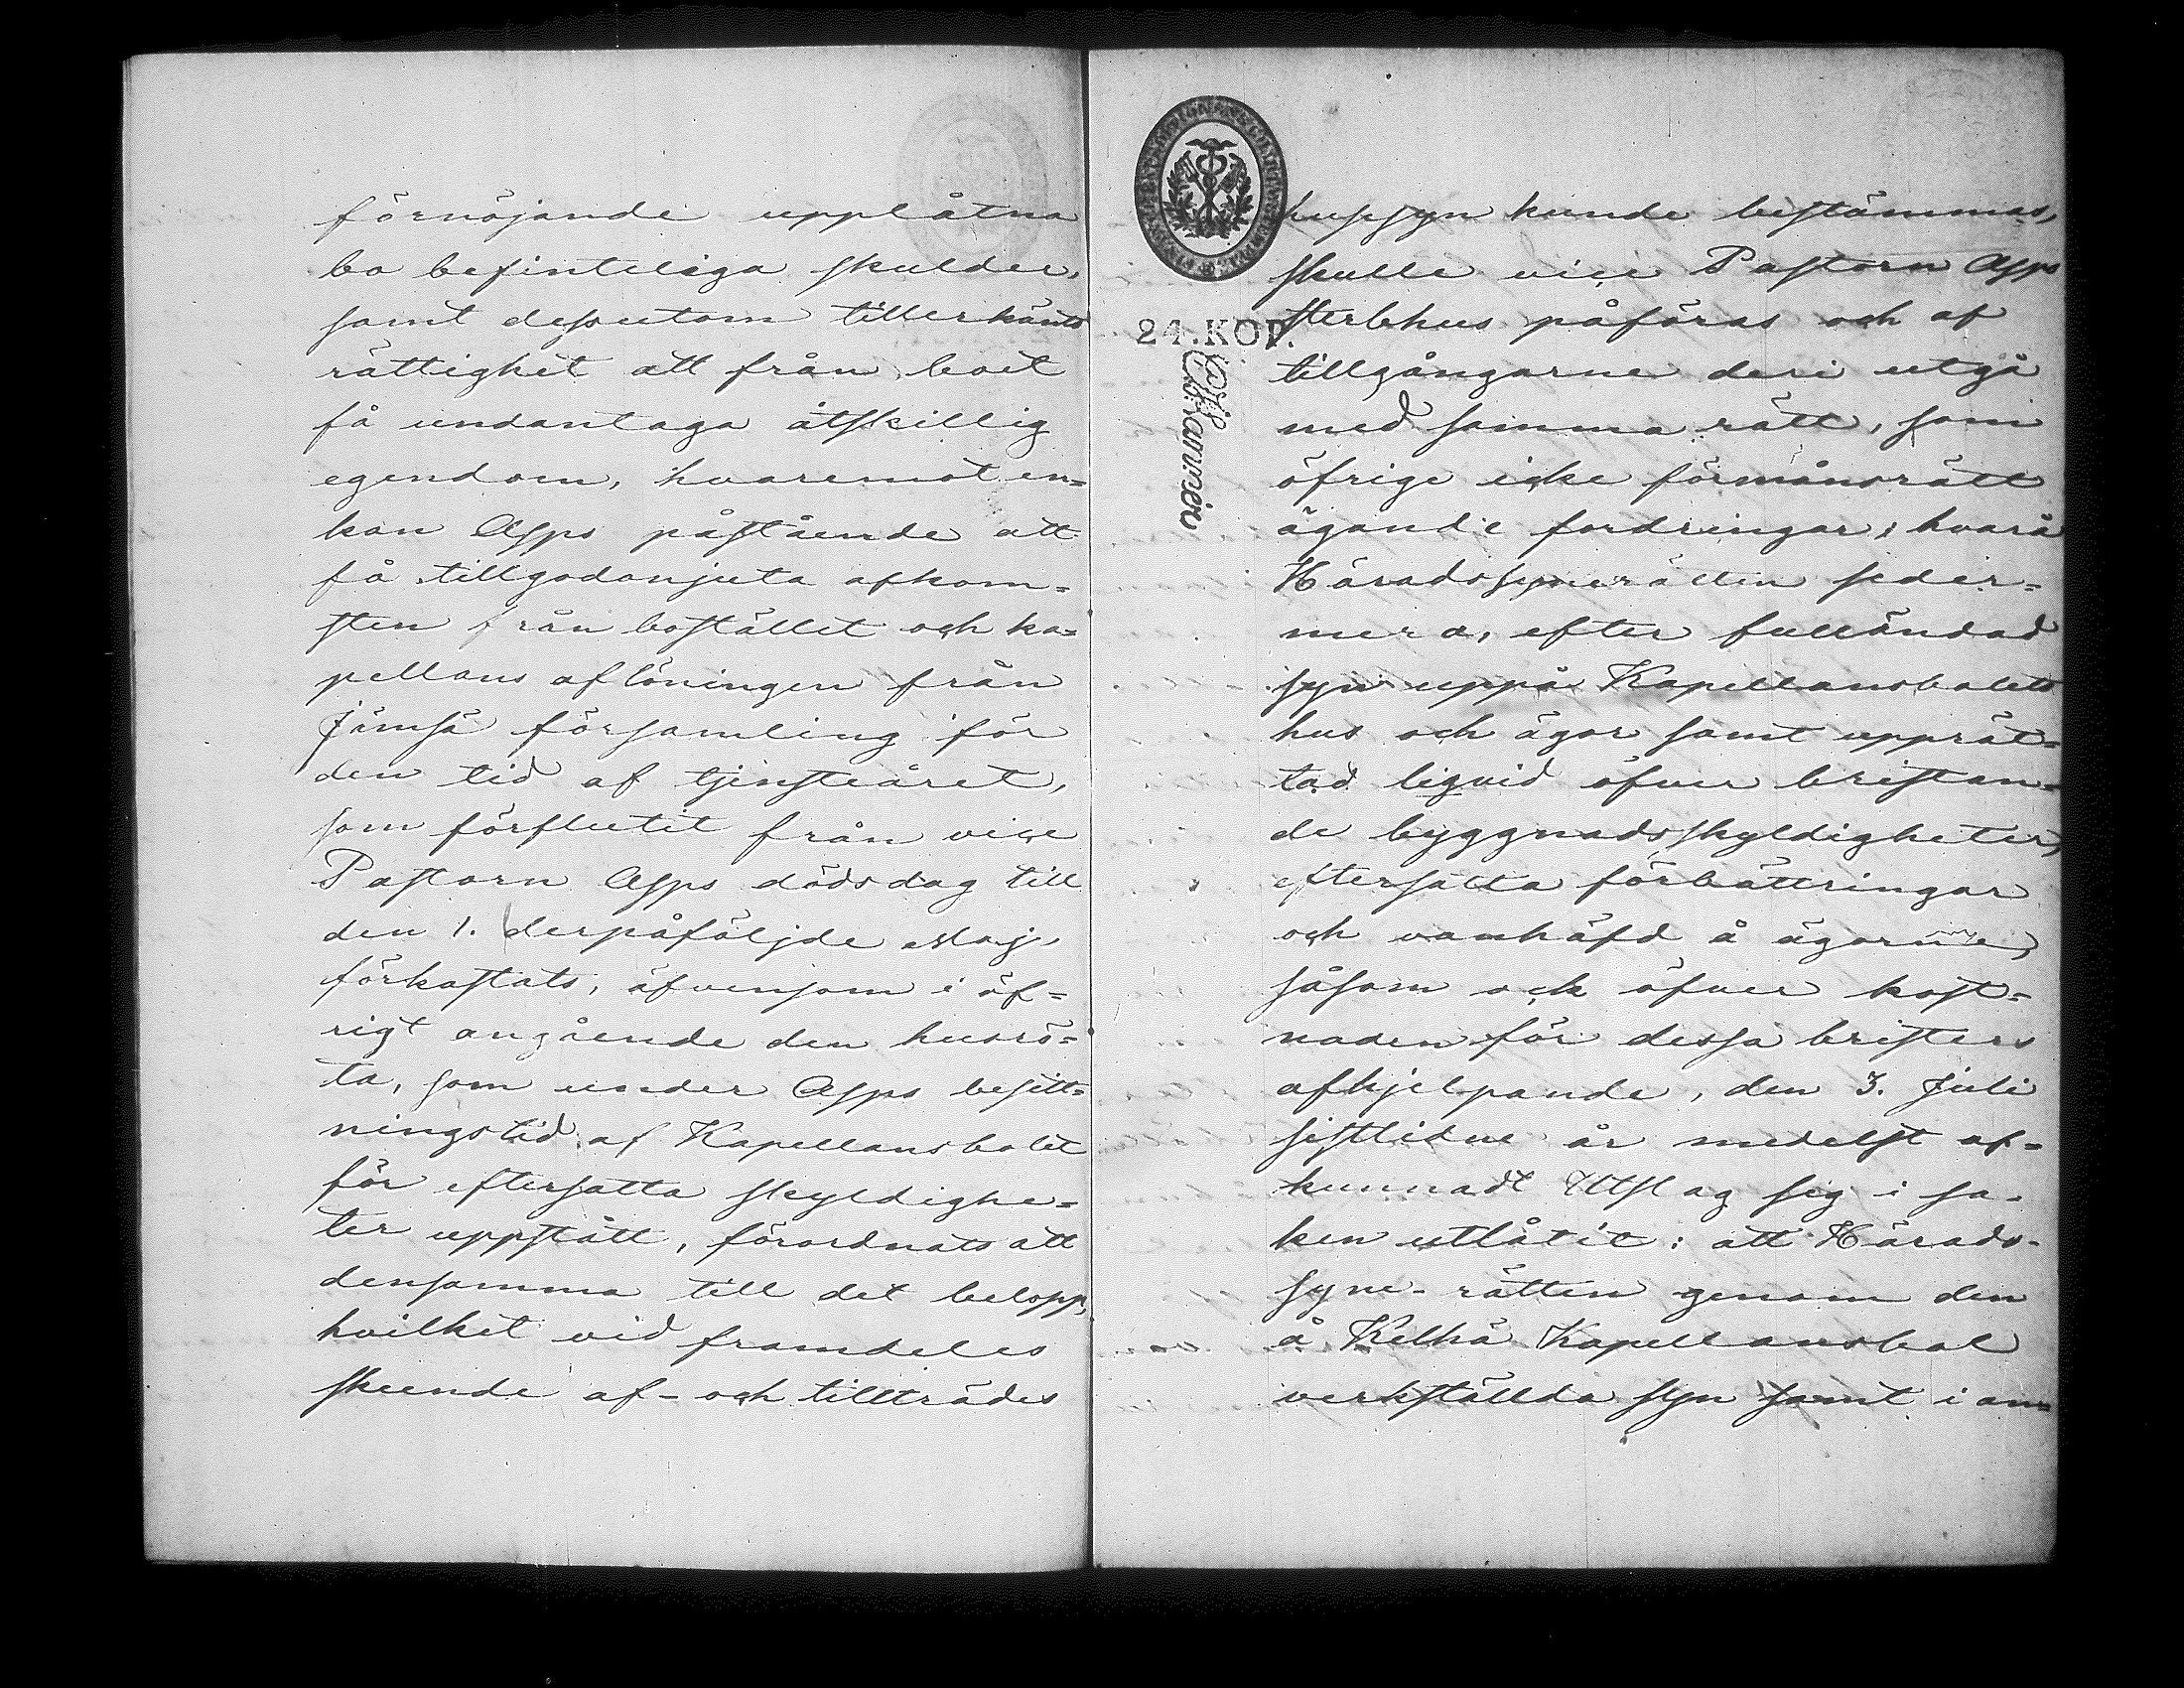 förnöjande upplåtna
bo befinteliga skulder,
samt dessutom tillerkänts
rättighet att från boet
få undantaga åtskillig
egendom, hvaremot en=
kan Asps påstående att
få tillgodonjuta afkom=
sten från bostället och ka=
pellans aflöningen från
Jämsä församling för
den tid af tjensteåret,
som förflutit från vice
Pastorn Asps dödsdag till
den 1. derpåföljde Maj,
förkastats, äfvensom i öf=
rigt angående den husrö=
ta, som under Asps besitt=
ningstid af Kapellansbolet
för eftersatta skyldighe=
ter uppstått, förordnats att
densamma till det belopp,
hvilket vid framdeles
skeende af- och tillträdes
24.KOP.
hussyn kunde bestämmas,
skulle vice Pastorn Asps
sterbhus påföras och af
tillgångarne deri utgå
med samma rätt, som
öfrige icke förmånsrätt
ägande fordringar; hvarå
Häradssynerätten seder=
mera, efter fulländad
syn uppå Kapellansbolets
hus och ägor samt upprät=
tad liqvid öfver bristan=
de byggnadsskyldigheter,
eftersatta förbättringar
och vanhäfd å ägorne,
såsom ock öfver kost=
naden för dessa bristers
afhjelpande, den 3. Juli
sistlidne år medelst af=
kunnadt Utslag sig i sa-
ken utlåtit: att Härads-
syne-rätten genom den
å Kelhä Kapellansbol
verkställda syn samt i an=